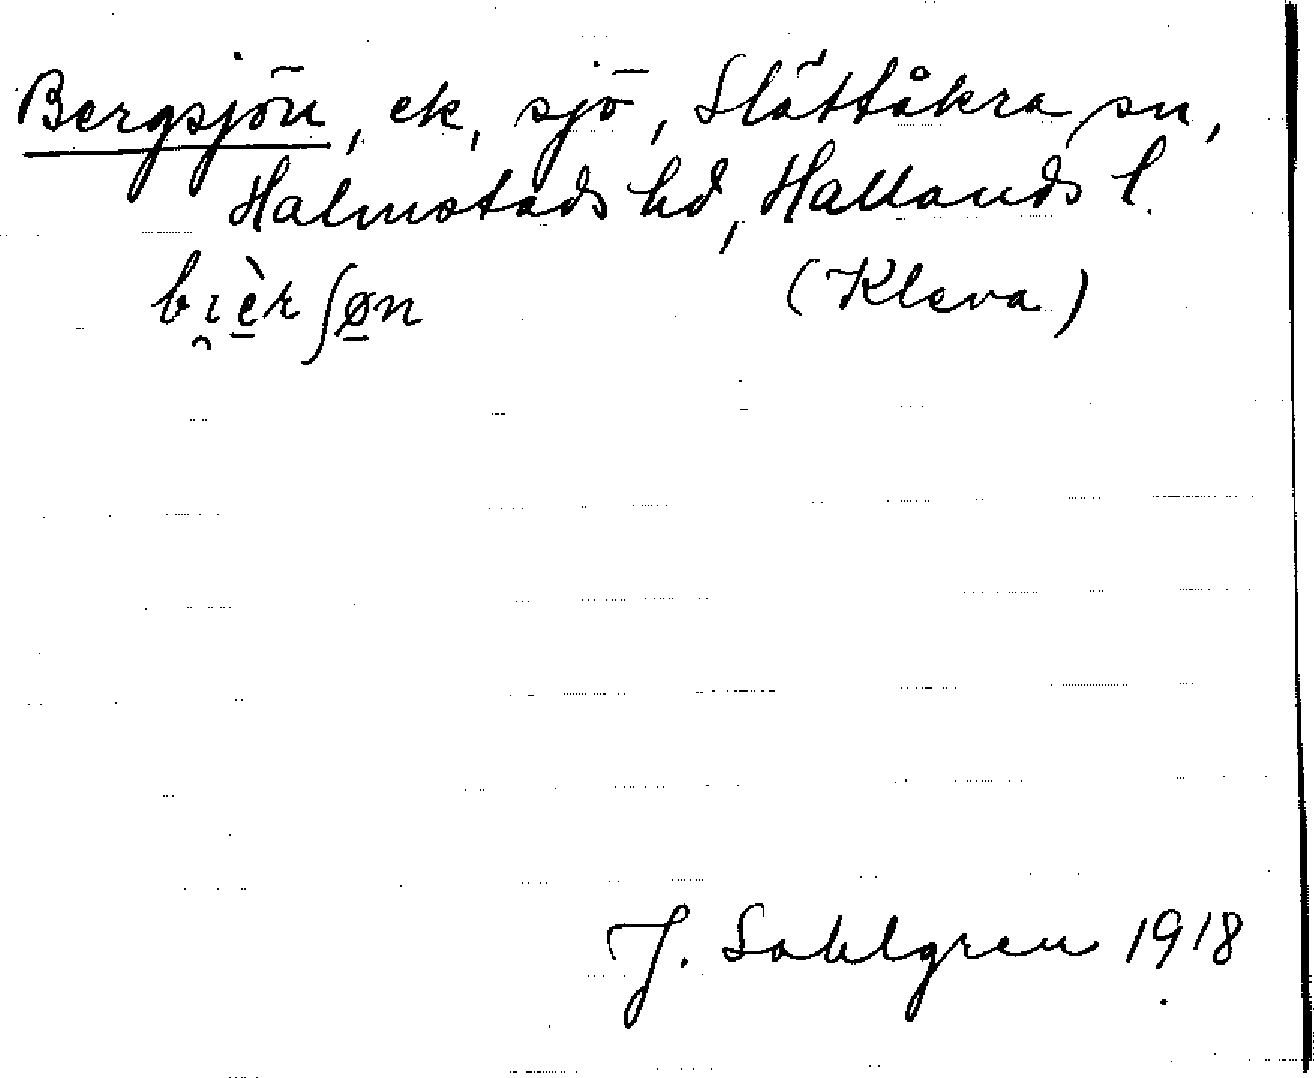 Bergsjön, ek, sjö, Slättåkra sn,
Halmstads hd, Hallands l.
bı̯è̱rʃø̱n (Kleva)
J. Sahlgren 1918